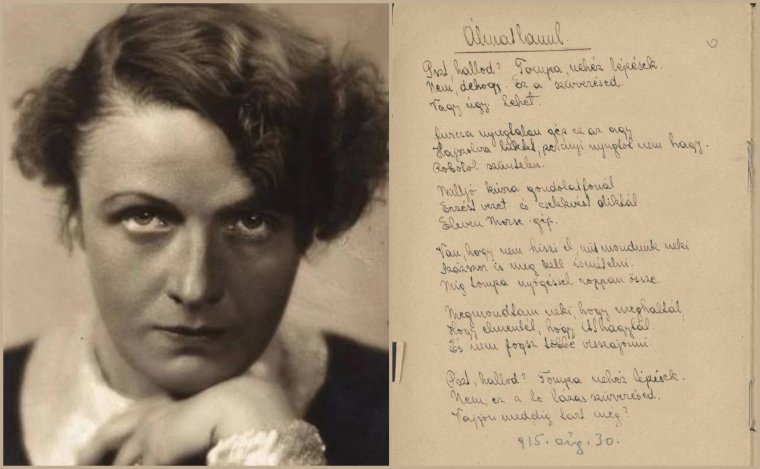 Álmatlanul.
Pszt, hallod? Tompa, nehéz lépések.
Nem, dehogy. Ez a szívverésed.
Vagy úgy. Lehet.
Furcsa nyugtalan gép ez az agy
Hajszolva lüktet, percnyi nyugtot nem hagy.
Robotol szüntelen.
kúsza gondolatfonál
Érzést vezet és értekvést diktál
Eleven Morse-gép.
Van, hogy nem hiszi el, mit mondunk neki
Százszor is meg kell ismételni.
Míg tompa nyögéssel roppan össze.
Megmondtam neki, hogy meghaltál,
Hogy elmentél, hogy itthagytál
És nem fogsz többé visszajönni.
Pszt, hallod? Tompa nehéz lépések.
Nem, ez a te lázas szívverésed.
Vajjon meddig tart még?
915. aug. 30.